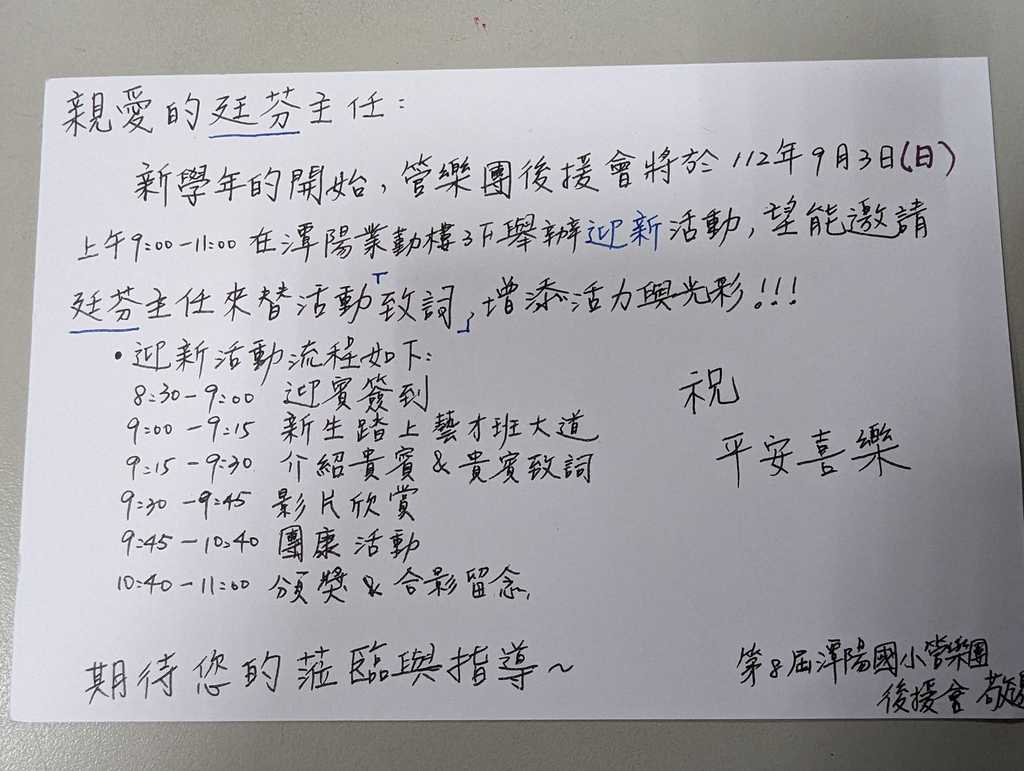 親愛的廷芬主任：
新學年的開始，管樂團後援會將於112年9月3日(日)
上午9:00-11:00在潭陽業勤樓3F舉辦迎新活動，望能邀請
廷芬主任來替活動「致詞」，增添活力與光彩!!!
•迎新活動流程如下：
8:30-9:00 迎賓簽到
9:00-9:15 新生踏上藝才班大道
9:15-9:30 介紹貴賓&貴賓致詞
9:30-9:45 影片欣賞
9:45-10:40 團康活動
10:40-11:00 頒獎&合影留念,
祝
平安喜樂
期待您的蒞臨與指導~
第8屆潭陽國小管樂團
後援會 敬